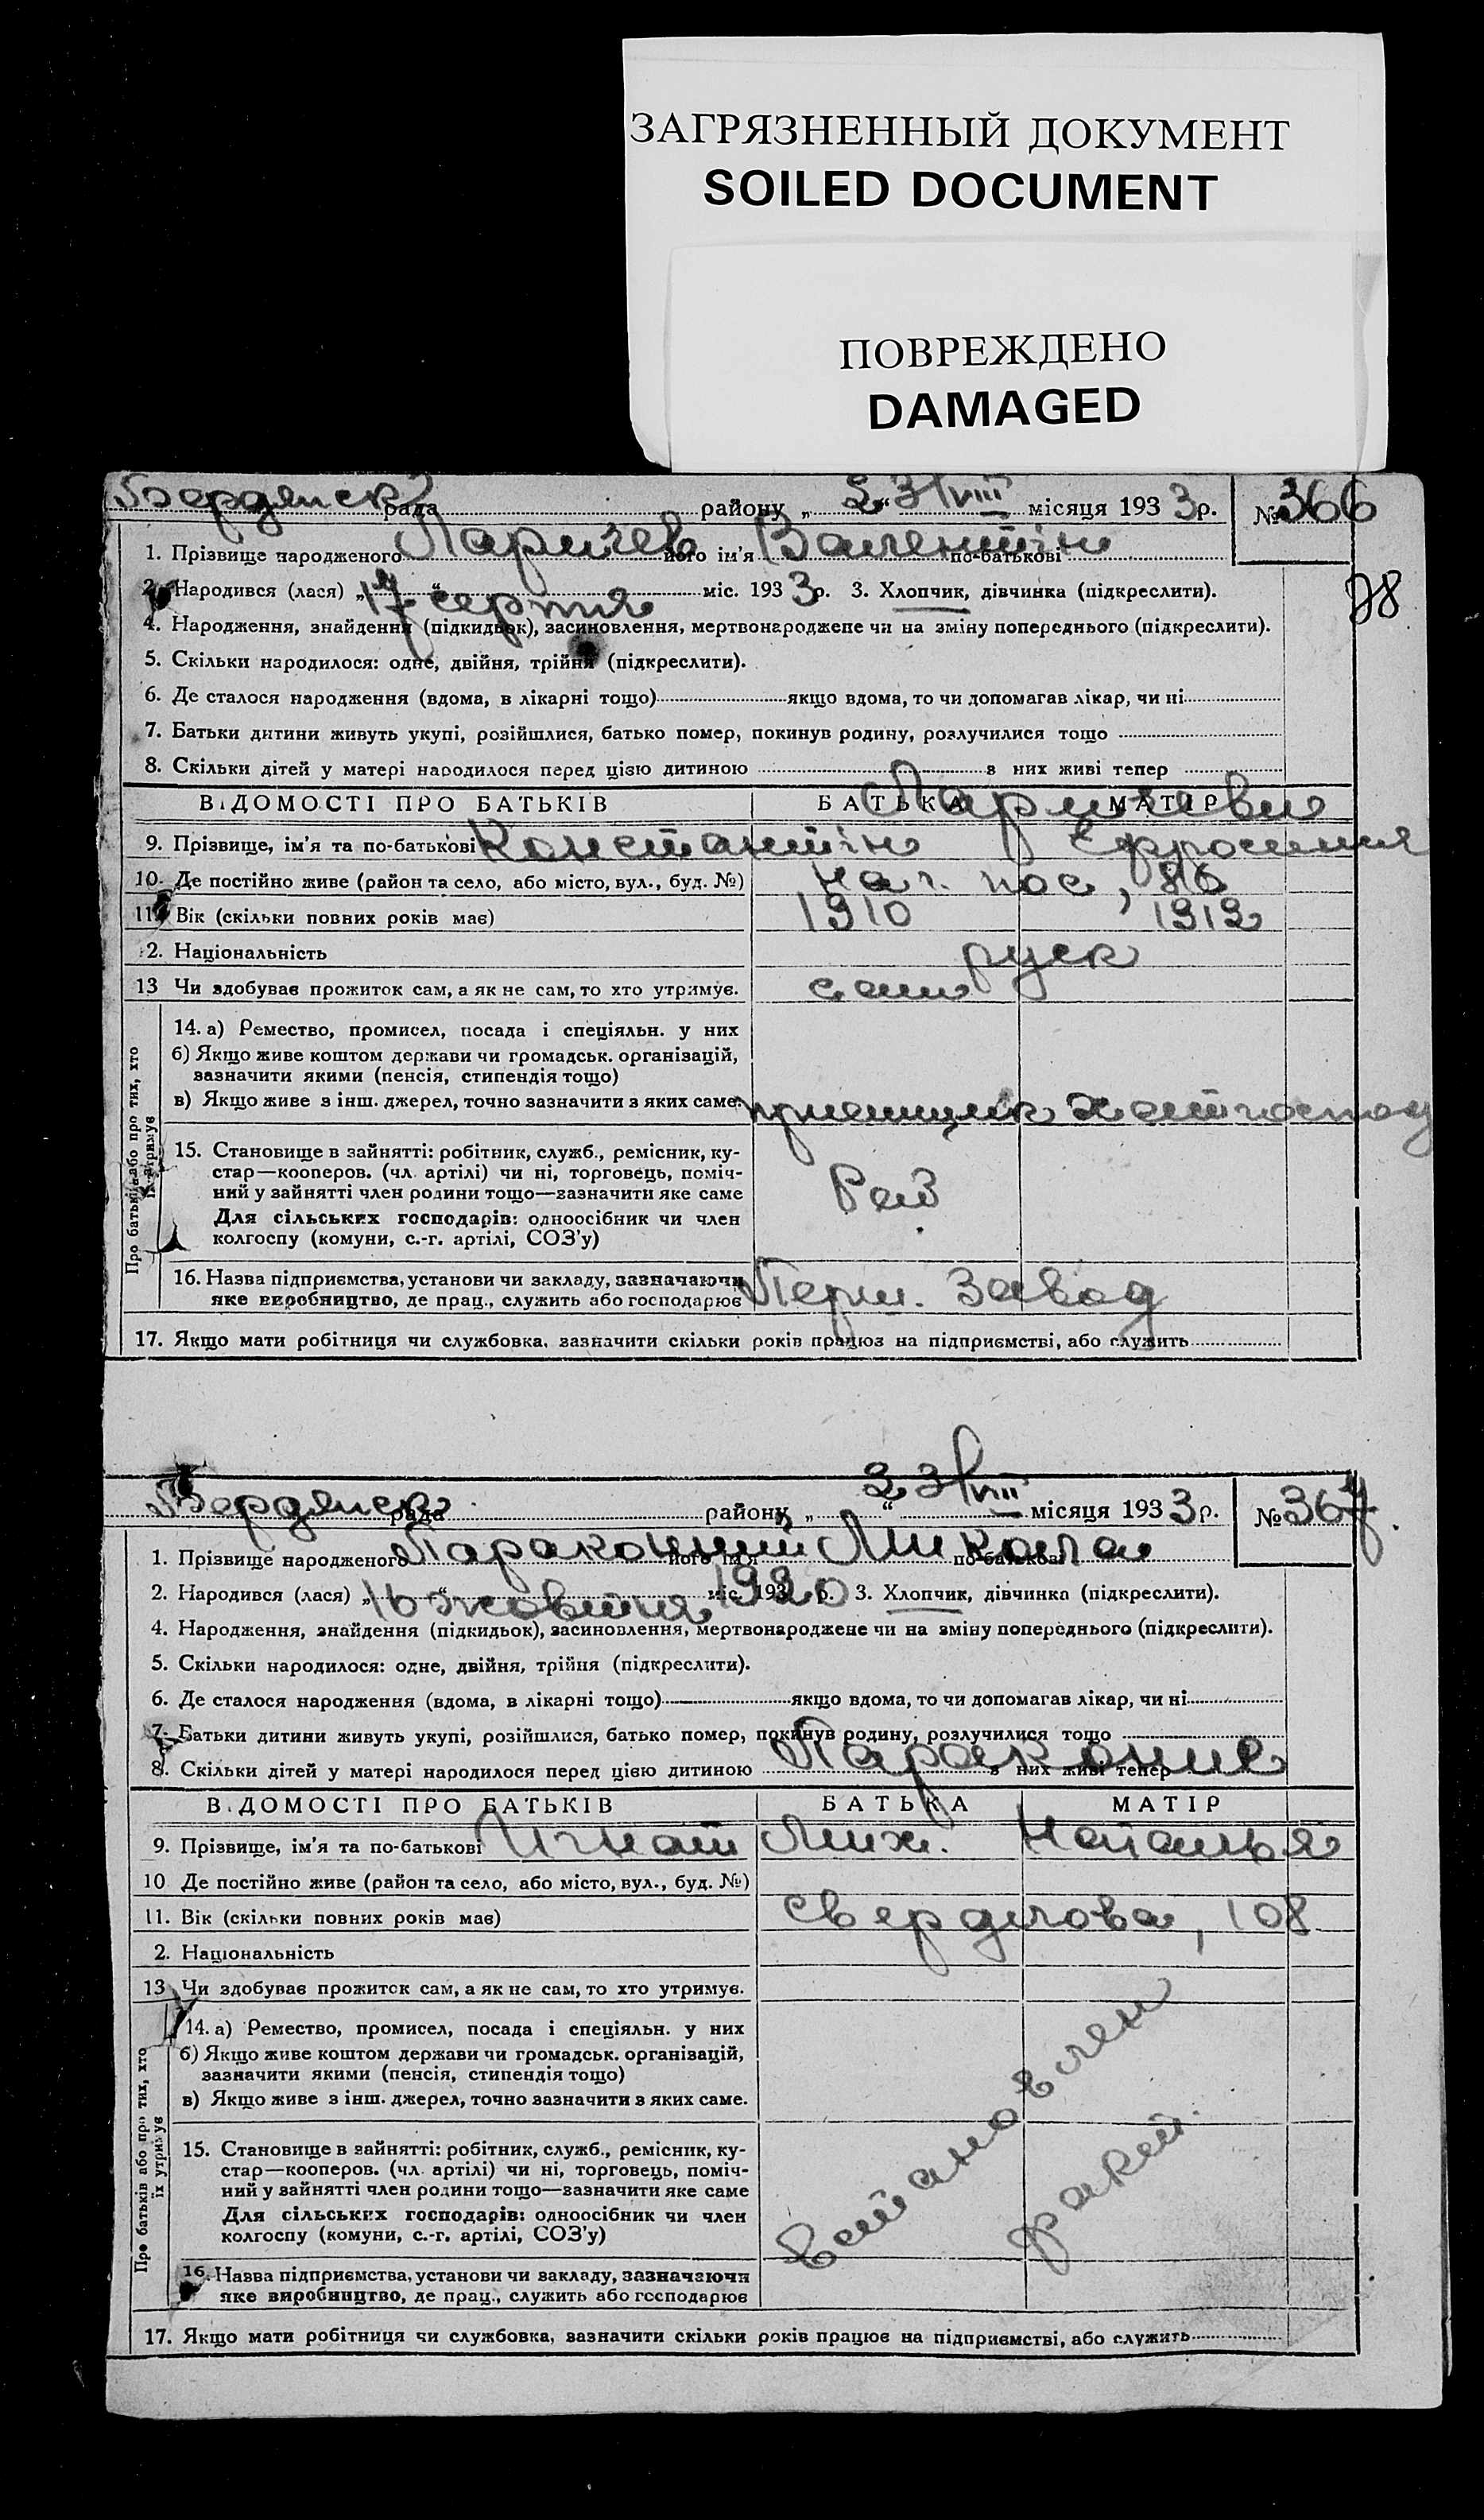 ЗАГРЯЗНЕННЫЙ ДОКУМЕНТ
SOILED DOCUMENT
ПОВРЕЖДЕНО
DAMAGED
Бердянск рада району „ 23/VIII “ місяця 1933 р. № 366
1. Прізвище народженого Ларичев його ім'я Валентін по-батькові
2. Народився (лася) „17“ серпня міс. 1933 р. 3. Хлопчик, дівчинка (підкреслити).
28
4. Народження, знайдення (підкидьок), засиновлення, мертвонароджене чи на зміну попереднього (підкреслити).
5. Скільки народилося: одне, двійня, трійня (підкреслити).
6. Де сталося народження (вдома, в лікарні тощо) якщо вдома, то чи допомагав лікар, чи ні
7. Батьки дитини живуть укупі, розійшлися, батько помер, покинув родину, розлучилися тощо
8. Скільки дітей у матері народилося перед цією дитиною з них живі тепер
Ларичеви
ВІДОМОСТІ ПРО БАТЬКІВ БАТЬКА МАТІР
9. Прізвище, ім'я та по-батькові Константін Ефросиния
10. Де постійно живе (район та село, або місто, вул., буд. №) нач. пос, 86
11. Вік (скільки повних років має) 1910 1912
2. Національність руск
13 Чи здобуває прожиток сам, а як не сам, то хто утримує. сам
Про батьків або про тих, хто їх утримує
14. а) Ремество, промисел, посада і спеціяльн. у них
б) Якщо живе коштом держави чи громадськ. організацій,
зазначити якими (пенсія, стипендія тощо)
в) Якщо живе з інш. джерел, точно зазначити з яких саме.
15. Становище в зайнятті: робітник, служб., ремісник, ку-
стар—кооперов. (чл. артілі) чи ні, торговець, поміч-
ний у зайнятті член родини тощо—зазначити яке саме
Для сільських господарів: одноосібник чи член
колгоспу (комуни, с.-г. артілі, СОЗ'у)
16. Назва підприємства, установи чи закладу, зазначаючи
яке виробництво, де прац., служить або господарює Перш. Завод
17. Якщо мати робітниця чи службовка, зазначити скільки років працює на підприємстві, або служить
Бердянск рада району „ 23/VIII “ місяця 1933 р. № 367
1. Прізвище народженого Тараконий його ім'я Микола по-батькові
2. Народився (лася) „16“ жовтня міс. 193 р. 1920 3. Хлопчик, дівчинка (підкреслити).
4. Народження, знайдення (підкидьок), засиновлення, мертвонароджене чи на зміну попереднього (підкреслити).
5. Скільки народилося: одне, двійня, трійня (підкреслити).
6. Де сталося народження (вдома, в лікарні тощо) якщо вдома, то чи допомагав лікар, чи ні
7. Батьки дитини живуть укупі, розійшлися, батько помер, покинув родину, розлучилися тощо
8. Скільки дітей у матері народилося перед цією дитиною з них живі тепер
ВІДОМОСТІ ПРО БАТЬКІВ БАТЬКА МАТІР
9. Прізвище, ім'я та по-батькові Игнат Мих. Наталья
10 Де постійно живе (район та село, або місто, вул., буд. №)
11. Вік (скільки повних років має) Свердлова, 108
2. Національність
13 Чи здобуває прожиток сам, а як не сам, то хто утримує.
Про батьків або про тих, хто їх утримує
14. а) Ремество, промисел, посада і спеціяльн. у них
б) Якщо живе коштом держави чи громадськ. організацій,
зазначити якими (пенсія, стипендія тощо)
в) Якщо живе з інш. джерел, точно зазначити з яких саме.
15. Становище в зайнятті: робітник, служб., ремісник, ку-
стар—кооперов. (чл. артілі) чи ні, торговець, поміч-
ний у зайнятті член родини тощо—зазначити яке саме
Для сільських господарів: одноосібник чи член
колгоспу (комуни, с.-г. артілі, СОЗ'у)
Встановлен
16. Назва підприємства, установи чи закладу, зазначаючи
яке виробництво, де прац., служить або господарює
17. Якщо мати робітниця чи службовка, зазначити скільки років працює на підприємстві, або служить